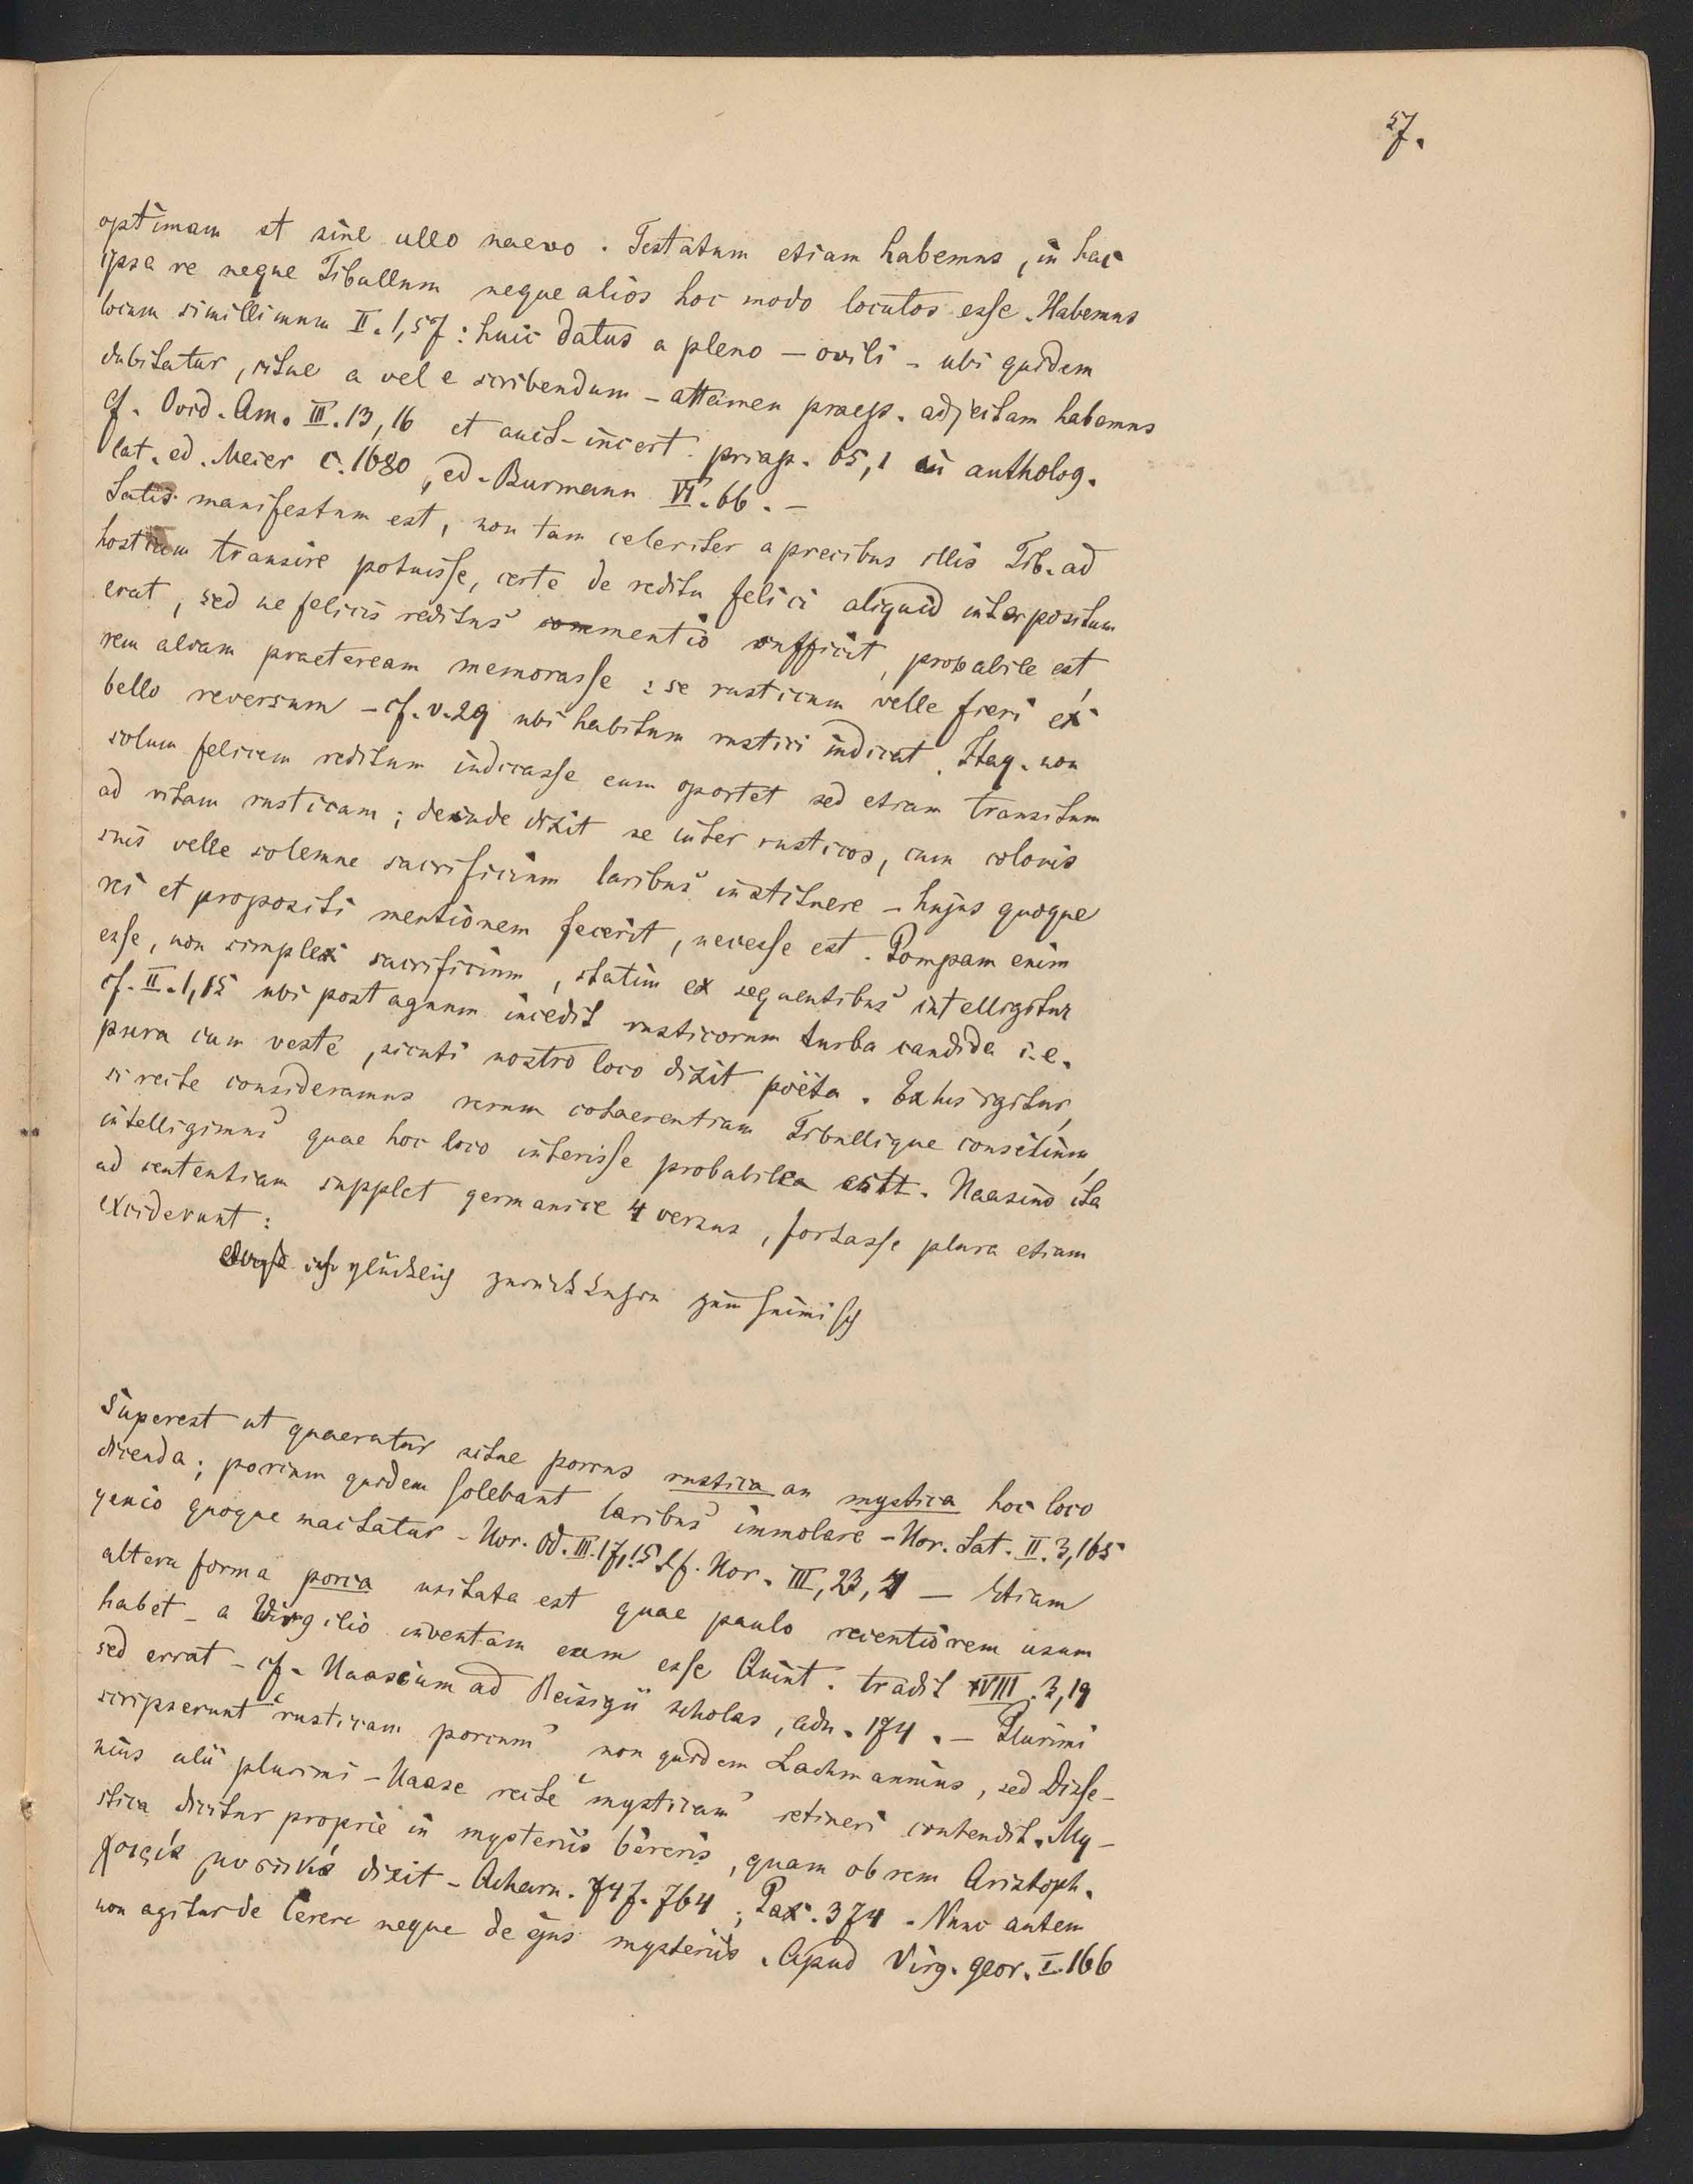 57.
optimam et sine ullo naevo. Testatum etiam habemus, in hac
ipsa re neque Tibullum neque alios hoc modo locutos esse. Habemus
locum simillimum II. 1, 57: huic datus a pleno – ovili – ubi quidem
dubitatur, sitne a vel e scribendum – attamen praep. adjectam habemus
cf. Ovid. Am. III. 13, 16 et auct. incert. priap. 65, 1 in antholog.
lat. ed. Meier c. 1680, ed. Burmann VI. 66. –
Satis manifestum est, non tam celeriter a precibus illis Tib. ad
hostiam transire potuisse, certe de reditu felici aliquid interpositum
erat, sed ne felicis reditus mentio sufficit, probabile est,
rem aliam praeteream memorasse: se rusticum velle fieri ex
bello reversum – cf. v. 29 ubi habitum rustici indicat. Itaq. non
solum felicem reditum indicasse eum oportet sed etiam transitum
ad vitam rusticam; deinde dixit se inter rusticos, cum colonis
suis velle solemne sacrificium laribus instituere – hujus quoque
rei et propositi mentionem fecerit, necesse est. Pompam enim
esse, non simplex sacrificium, statim ex sequentibus intelligitur
cf. II. 1, 15 ubi post agnum incedit rusticorum turba candida i. e.
pura cum veste, sicuti nostro loco dixit poëta. Ex his igitur,
si recte consideramus rerum cohaerentiam Tibullique consilium,
intelligimus quae hoc loco interisse probabile est. Haasius ita
ad sententiam supplet germanice 4 versus, fortasse plura etiam
exciderunt:
ich glücklich zurückkehren zum heimisch
Superest ut quaeratur sitne porcus rustica an mystica hoc loco
dicenda; porcum quidem solebant laribus immolare – Hor. Sat. II. 3, 165
genio quoque mactatur – Hor. Od. III. 17, 15 cf. Hor. III, 23, 4 – Etiam
altera forma porca usitata est quae paulo recentiorem usum
habet – a Virgilio inventam eam esse Quint. tradit VIII. 3, 19
sed errat – cf. Haasium ad Reisigii scholas, adn. 174. – Plurimi
scripserunt "rusticam porcum" non quidem Lachmannius, sed Disse-
nius alii plurimi – Haase recte "mysticam" retineri contendit. My-
stica dicitur proprie in mysteriis Cereris, quam ob rem Aristoph.
χοίρους μυστικάς dixit – Acharn. 747. 764; Pax. 374. Nunc autem
non agitur de Cerere neque de ejus mysteriis. Apud Virg. geor. I. 166